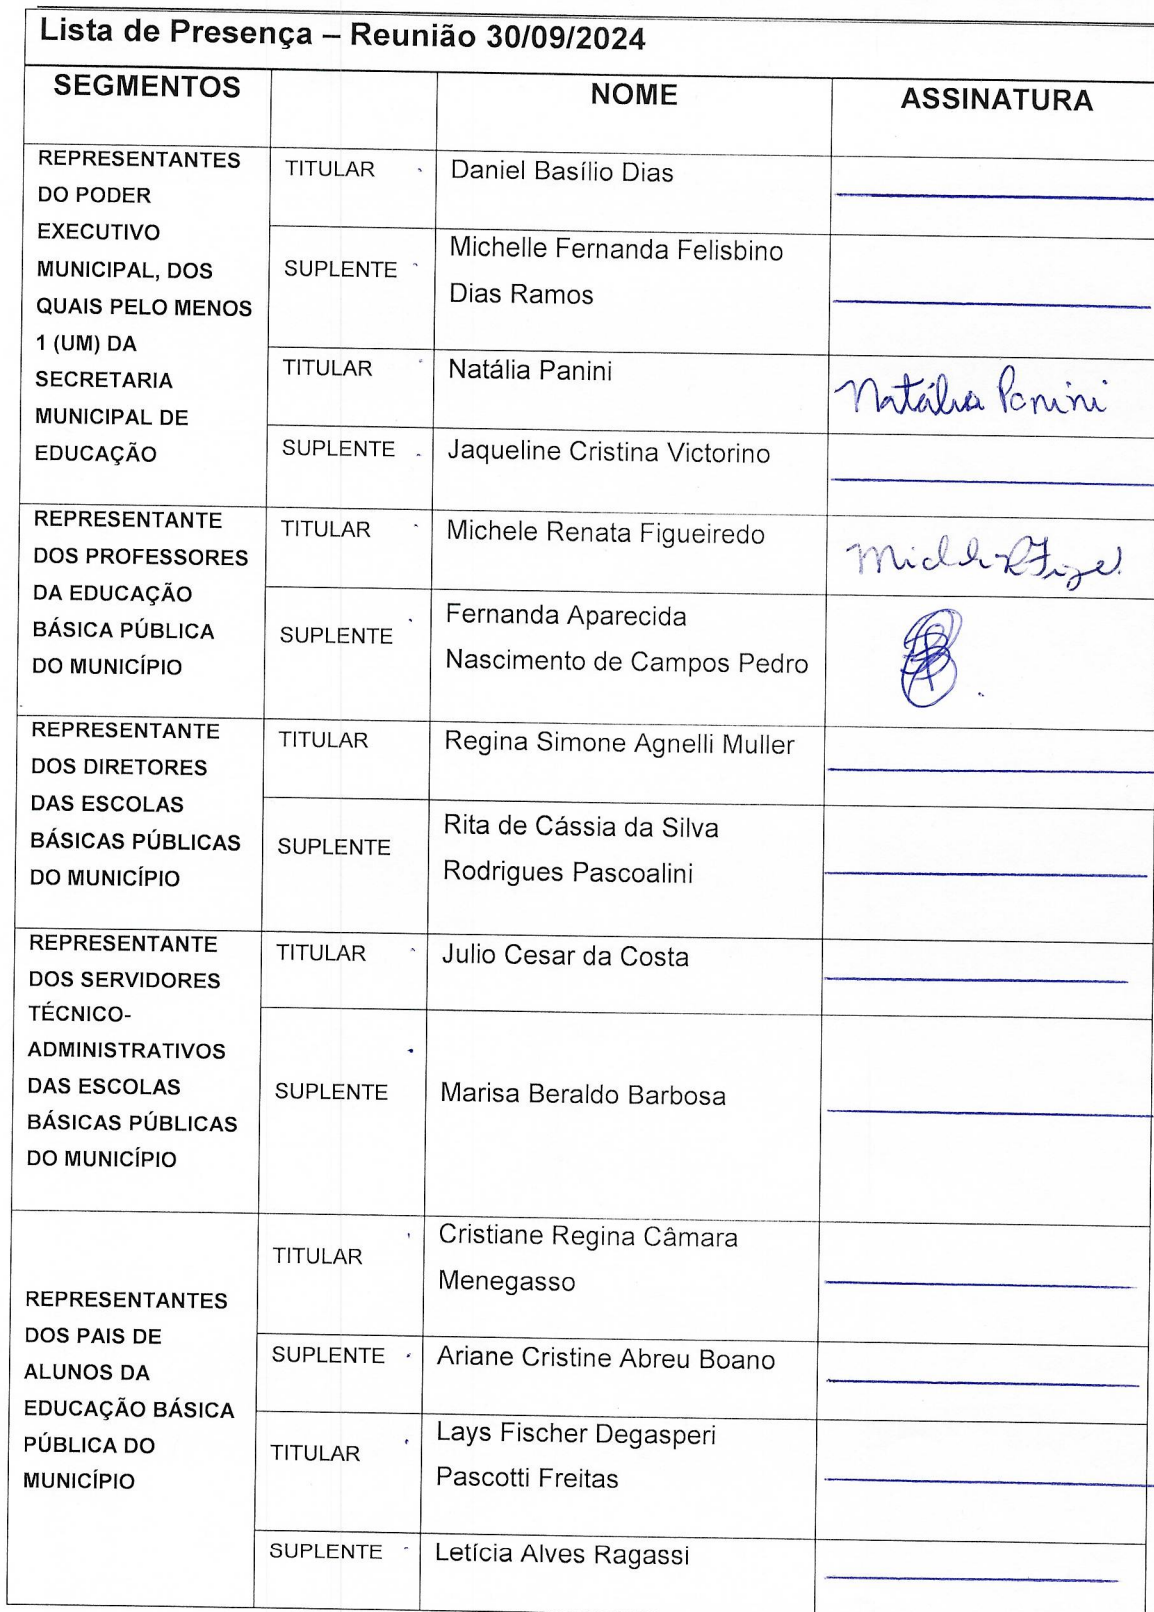 Lista de Presença – Reunião 30/09/2024
SEGMENTOS
NOME
ASSINATURA
REPRESENTANTES
DO PODER
EXECUTIVO
MUNICIPAL, DOS
QUAIS PELO MENOS
1 (UM) DA
SECRETARIA
MUNICIPAL DE
EDUCAÇÃO
TITULAR
Daniel Basílio Dias
SUPLENTE
Michelle Fernanda Felisbino
Dias Ramos
TITULAR
Natália Panini
Natália Panini
SUPLENTE
Jaqueline Cristina Victorino
REPRESENTANTE
DOS PROFESSORES
DA EDUCAÇÃO
BÁSICA PÚBLICA
DO MUNICÍPIO
TITULAR
Michele Renata Figueiredo
SUPLENTE
Fernanda Aparecida
Nascimento de Campos Pedro
REPRESENTANTE
DOS DIRETORES
DAS ESCOLAS
BÁSICAS PÚBLICAS
DO MUNICÍPIO
TITULAR
Regina Simone Agnelli Muller
SUPLENTE
Rita de Cássia da Silva
Rodrigues Pascoalini
REPRESENTANTE
DOS SERVIDORES
TÉCNICO-
ADMINISTRATIVOS
DAS ESCOLAS
BÁSICAS PÚBLICAS
DO MUNICÍPIO
TITULAR
Julio Cesar da Costa
SUPLENTE
Marisa Beraldo Barbosa
REPRESENTANTES
DOS PAIS DE
ALUNOS DA
EDUCAÇÃO BÁSICA
PÚBLICA DO
MUNICÍPIO
TITULAR
Cristiane Regina Câmara
Menegasso
SUPLENTE
Ariane Cristine Abreu Boano
TITULAR
Lays Fischer Degasperi
Pascotti Freitas
SUPLENTE
Letícia Alves Ragassi